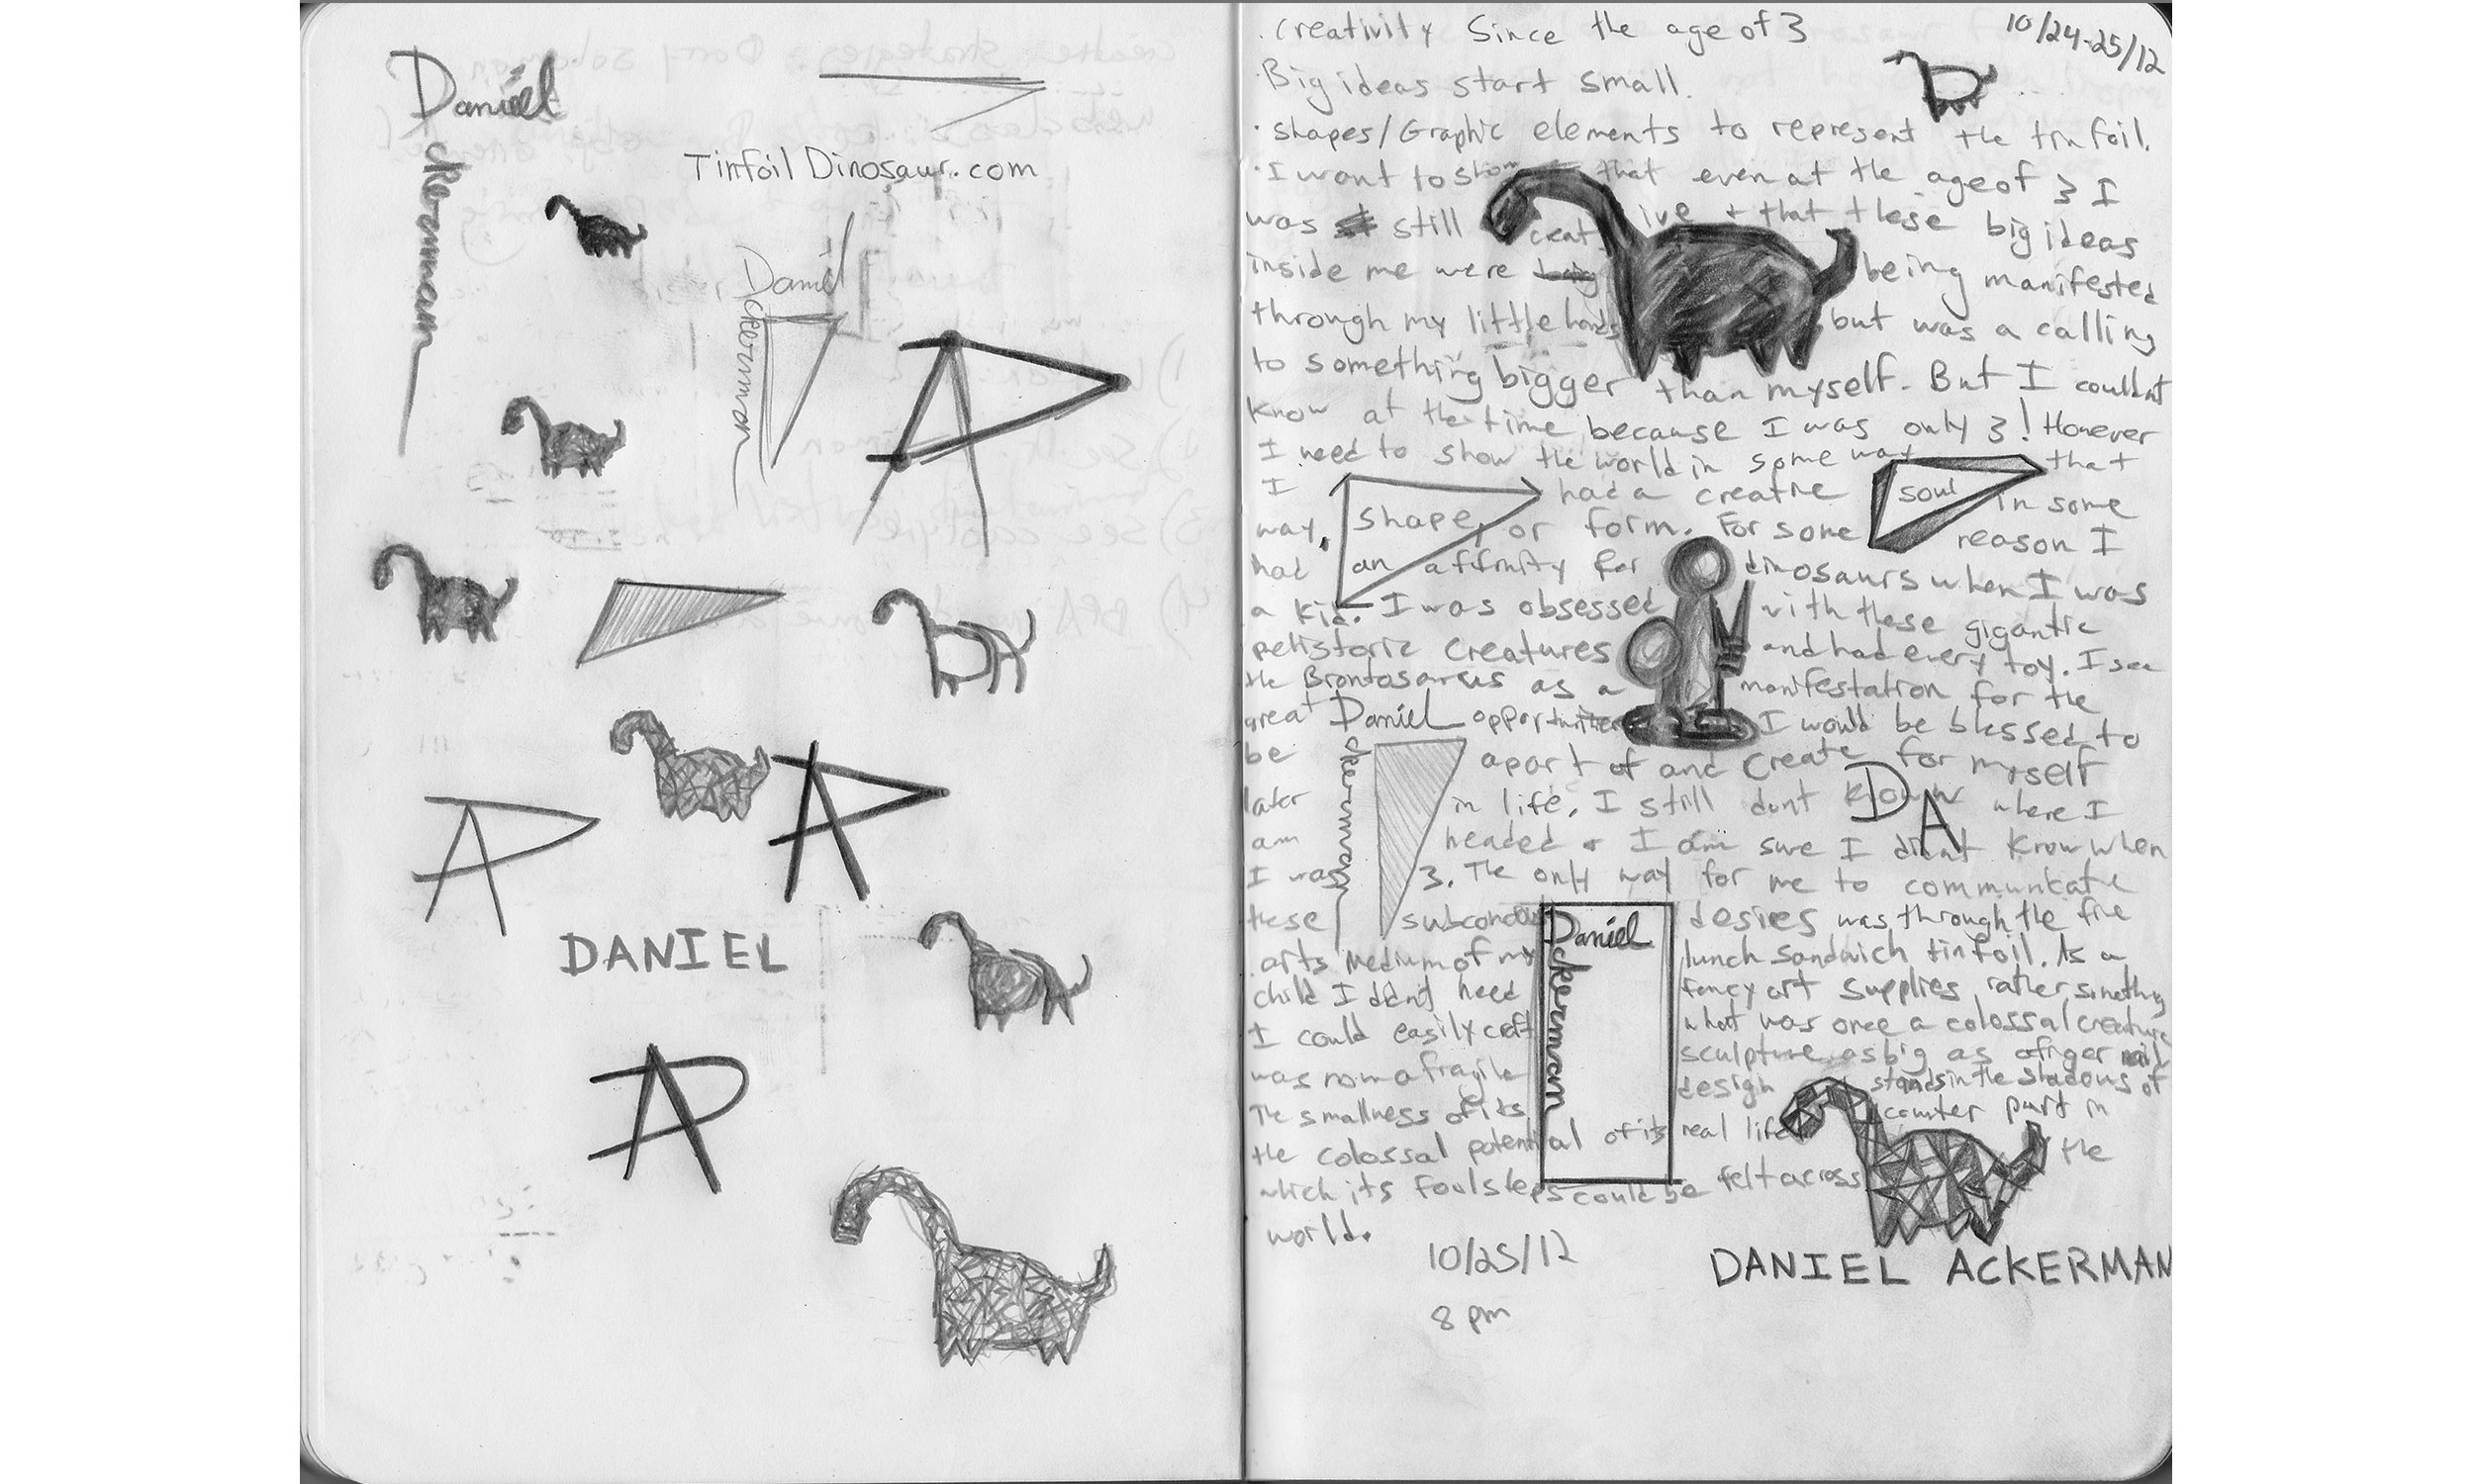 Daniel
ckermann
TinfoilDinosaur.com
Daniel
ckermman
DANIEL
· creativity Since the age of 3
10/24-25/12
· Big ideas start small.
· shapes/Graphic elements to represent the tinfoil.
· I want to show that even at the age of 3 I
was still creative + that these big ideas
inside me were being manifested
through my little hands but was a calling
to something bigger than myself. But I couldnt
know at the time because I was only 3! However
I need to show the world in some way that
I had a creative soul in some
way, shape, or form. For some reason I
had an affinity for dinosaurs when I was
a kid. I was obsessed with these gigantic
pehistoric creatures and had every toy. I see
the Brontosaurus as a manifestation for the
great opportunities I would be blessed to
be apart of and create for myself
later in life. I still dont know where I
am headed + I am sure I didnt know when
I was 3. The only way for me to communicate
these subconcious desires was through the fine
arts medium of my lunch sandwich tinfoil. As a
child I didnt need fancy art supplies, rather something
I could easily craft what was once a colossal creature
was now a fragile sculpture as big as a finger nail
The smallness of its design stands in the shadows of
the colossal potential of its real life counter part in
which its footsteps could be felt across the
world.
Daniel
ckermman
DA
Daniel
ckermman
10/25/12
8 pm
DANIEL ACKERMAN